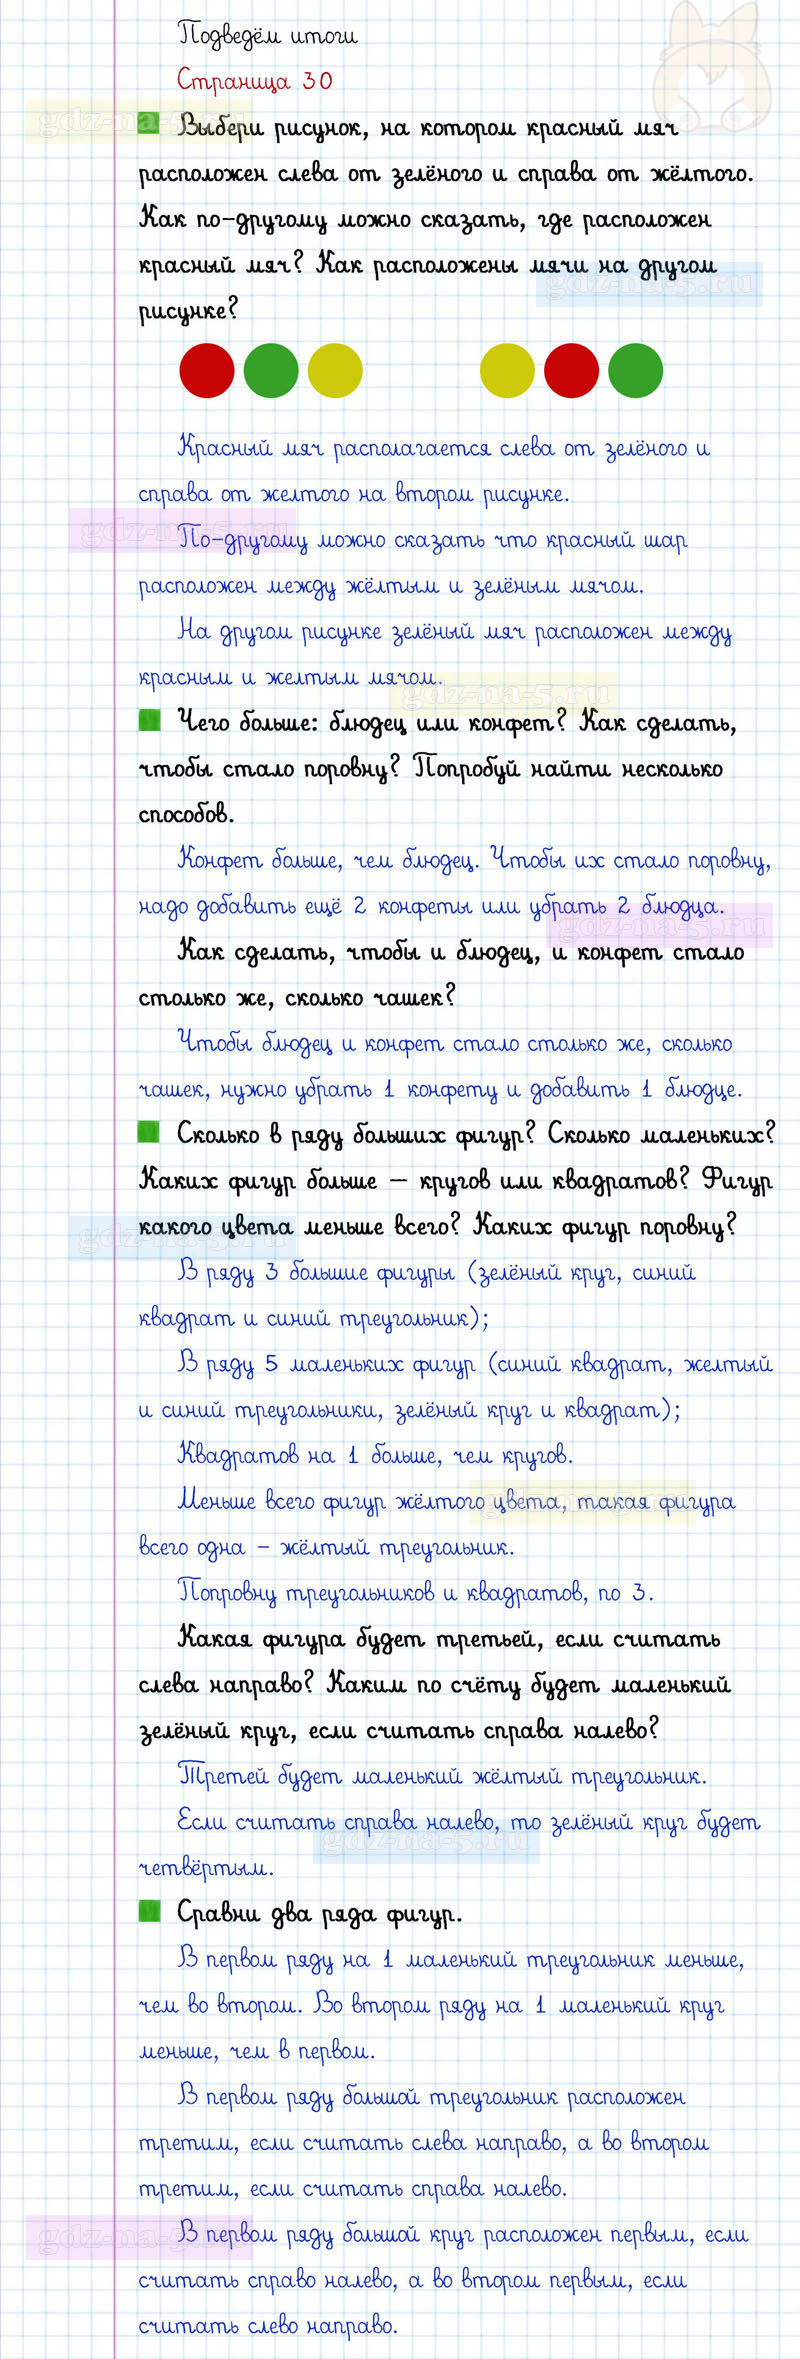 Подведём итоги
Страница 30
gdz-na-5.ru
Выбери рисунок, на котором красный мяч
расположен слева от зелёного и справа от жёлтого.
Как по-другому можно сказать, где расположен
красный мяч? Как расположены мячи на другом
gdz-na-5.ru
рисунке?
Красный мяч располагается слева от зелёного и
справа от желтого на втором рисунке.
gdz-na-5.ru
По-другому можно сказать что красный шар
расположен между жёлтым и зелёным мячом.
На другом рисунке зелёный мяч расположен между
красным и желтым мячом.
gdz-na-5.ru
Чего больше: блюдец или конфет? Как сделать,
чтобы стало поровну? Попробуй найти несколько
способов.
Конфет больше, чем блюдец. Чтобы их стало поровну,
надо добавить ещё 2 конфеты или убрать 2 блюдца.
gdz-na-5.ru
Как сделать, чтобы и блюдец, и конфет стало
столько же, сколько чашек?
Чтобы блюдец и конфет стало столько же, сколько
чашек, нужно убрать 1 конфету и добавить 1 блюдце.
Сколько в ряду больших фигур? Сколько маленьких?
Каких фигур больше – кругов или квадратов? Фигур
какого цвета меньше всего? Каких фигур поровну?
gdz-na-5.ru
В ряду 3 большие фигуры (зелёный круг, синий
квадрат и синий треугольник);
В ряду 5 маленьких фигур (синий квадрат, желтый
и синий треугольники, зелёный круг и квадрат);
Квадратов на 1 больше, чем кругов.
Меньше всего фигур жёлтого цвета, такая фигура
gdz-na-5.ru
всего одна – жёлтый треугольник.
Попровну треугольников и квадратов, по 3.
Какая фигура будет третьей, если считать
слева направо? Каким по счёту будет маленький
зелёный круг, если считать справа налево?
Третей будет маленький жёлтый треугольник.
Если считать справа налево, то зелёный круг будет
gdz-na-5.ru
четвёртым.
Сравни два ряда фигур.
В первом ряду на 1 маленький треугольник меньше,
чем во втором. Во втором ряду на 1 маленький круг
меньше, чем в первом.
В первом ряду большой треугольник расположен
третим, если считать слева направо, а во втором
третим, если считать справа налево.
gdz-na-5.ru
В первом ряду большой круг расположен первым, если
считать справо налево, а во втором первым, если
считать слево направо.